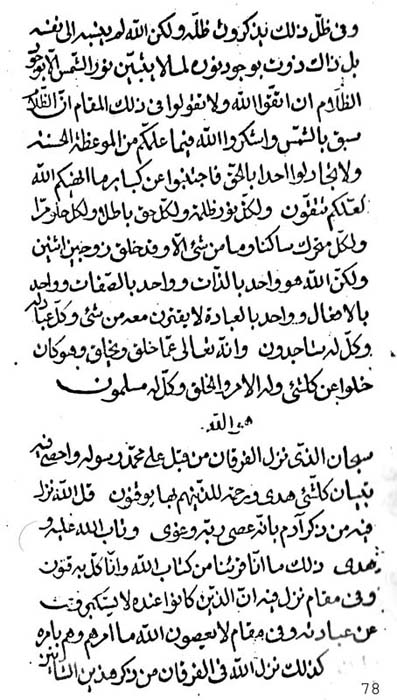 وفی ظلّ ذلك یذکرون ظلّه ولکن الله لم ینسبه الی نفسه
بل ذاك دون بوجود نون لما لا یتبیّن نور الشمس الّا بوجود
الظلام ان اتقوا الله ولا تقولوا فی ذلك المقام انّ الظلّ
سبق بالشمس واشکروا الله فیما علّمکم من الموعظة الحسنة
ولا تجادلوا احدا بالحق فاجتنبوا عن کبایر ما انهیکم الله
لعلّکم تتّقون ولکلّ نور ظلمة ولکلّ حق باطل ولکلّ حلو مرّا
ولکلّ متحرك ساکنا وما من شئ الّا وقد خلق زوجین اثنین
ولکنّ الله هو واحد بالذات و واحد بالصفات و واحد
بالافعال و واحد بالعبادة لا یقترن معه من شئ وکلّ عباد له
وکلّ له ساجدون وانّه تعالی عمّا خلق ویخلق وهو کان
خلوا عن کلشئ وله الامر والخلق وکلّ له مسلمون
هو الله
سبحان الّذی نزل الفرقان من قبل علی محمّد رسوله واحصی فیه
تبیان کلشئ هدی ورحمة للّذینهم بها یوقنون قل الله نزل
فیه من ذکر آدم بانّه عصی ربّه وغوی وتاب الله علیه و
هدی ذلك ما انّا قرئنا من کتاب الله وانّا کلّ به موقنون
وفی مقام نزل فیه انّ الذین کانوا عنده لا یستکبرون
عن عبادته وفی مقام لا یعصون الله ما امرهم وهم بامره
کذلك نزل الله فی الفرقان من ذکر هذین
78